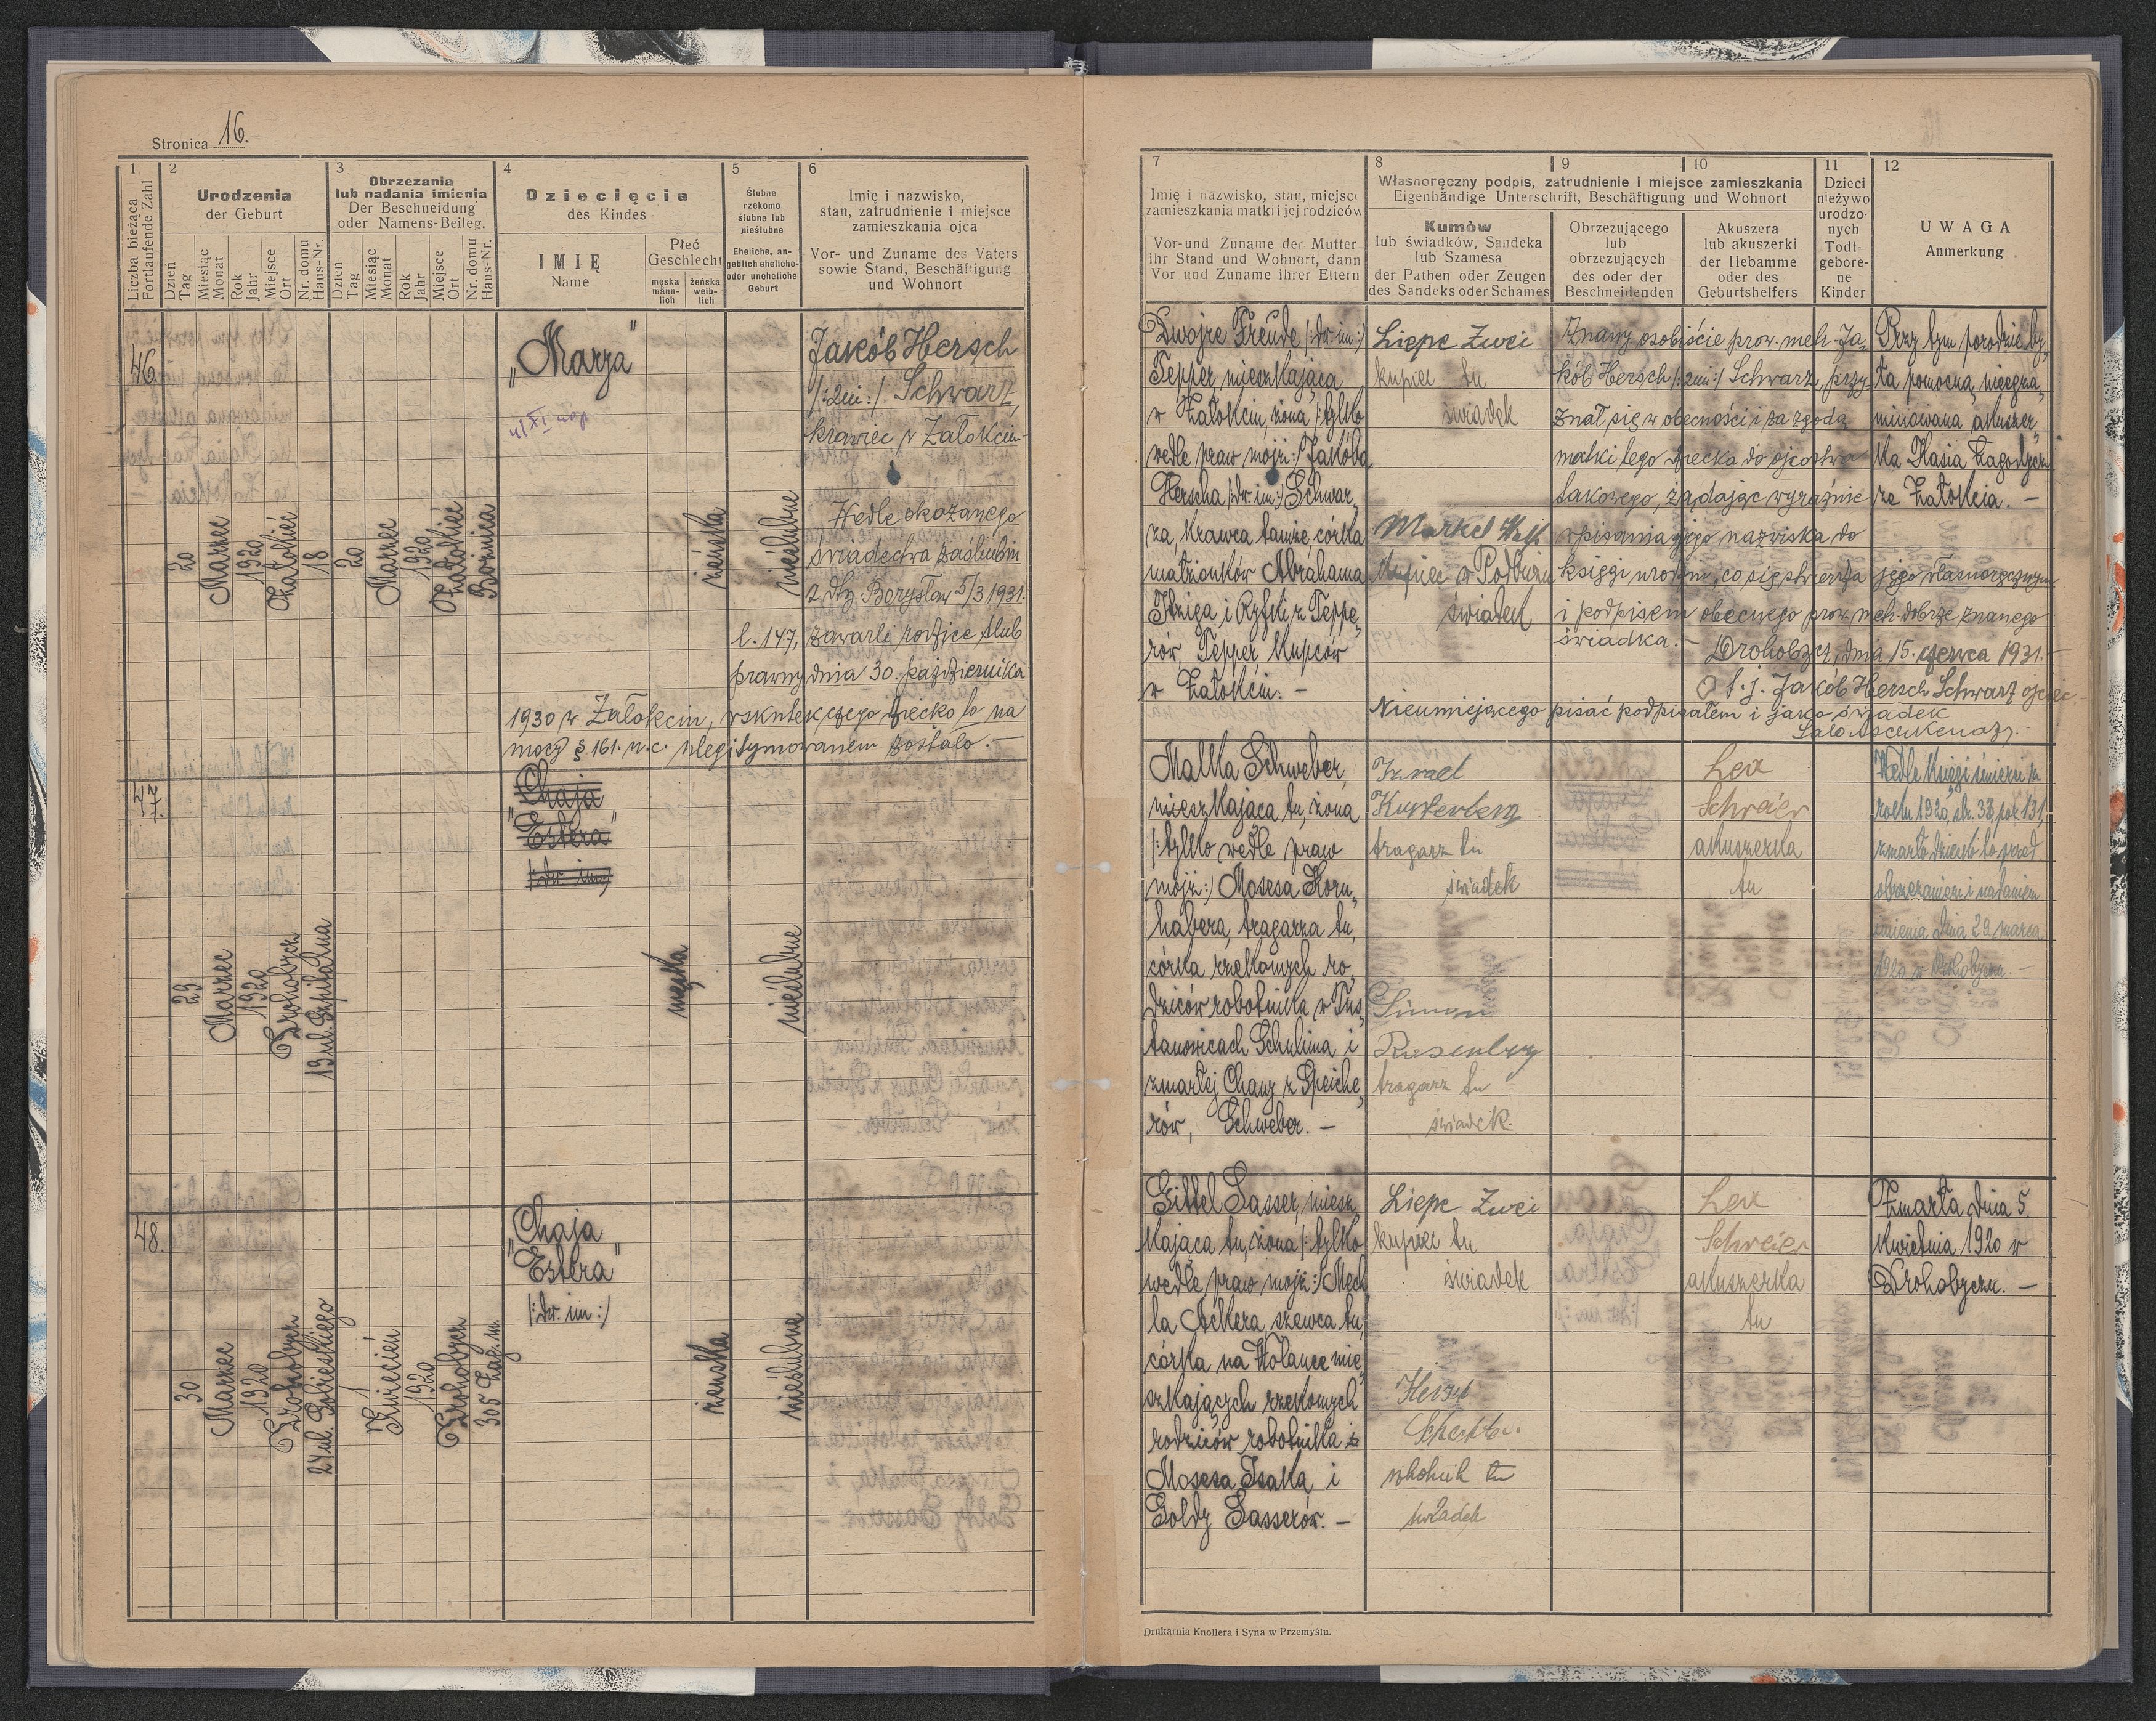 Stronica 16.
1.
Liczba bieżąca
Fortlaufende Zahl
2
Urodzenia
der Geburt
Dzień
Tag
Miesiąc
Monat
Rok
Jahr
Miejsce
Ort
Nr. domu
Haus-Nr.
3
Obrzezania
lub nadania imienia
Der Beschneidung
oder Namens-Beileg.
Dzień
Tag
Miesiąc
Monat
Rok
Jahr
Miejsce
Ort
Nr. domu
Haus-Nr.
4
Dziecięcia
des Kindes
IMIĘ
Name
Płeć
Geschlecht
męska
männ-
lich
żeńska
weib-
lich
5
Ślubne
rzekomo
ślubne lub
nieślubne
Eheliche, an-
geblich eheliche-
oder uneheliche
Geburt
6
Imię i nazwisko,
stan, zatrudnienie i miejsce
zamieszkania ojca
Vor- und Zuname des Vaters
sowie Stand, Beschäftigung
und Wohnort
7
Imię i nazwisko, stan, miejsce
zamieszkania matki i jej rodziców
Vor-und Zuname der Mutter
ihr Stand und Wohnort, dann
Vor und Zuname ihrer Eltern
8
9
10
Własnoręczny podpis, zatrudnienie i miejsce zamieszkania
Eigenhändige Unterschrift, Beschäftigung und Wohnort
Kumów
lub świadków, Sandeka
lub Szamesa
der Pathen oder Zeugen
des Sandeks oder Schames
Obrzezującego
lub
obrzezujących
des oder der
Beschneidenden
Akuszera
lub akuszerki
der Hebamme
oder des
Geburtshelfers
11
Dzieci
nieżywo
urodzo-
nych
Todt-
gebore-
ne
Kinder
12
UWAGA
Anmerkung
46.
20
Marzec
1920
Załokieć
18
20
Marzec
1920
Załokieć
Bożnica
„Marya"
żeńska
nieślubne
Jakób Hersch
/:2im:/ Schwarz,
krawiec w Załokciu-
Wedle okazanego
świadectwa zaślubin
z dty. Borysław 5/3 1931.
l. 147, zawarli rodzice ślub
prawny dnia 30. października
1930 w Załokciu, wskutek czego dziecko to na
mocy § 161. u.c. ulegitymowanem zostało.—
Dwojre Freude /:dw. im:/
Tepper, mieszkająca
w Załokciu, żona /:tylko
wedle praw mojż:/ Jakóba
Herscha /:dw. im:/ Schwar„
za, krawca tamże, córka
małżonków Abrahama
Izziga i Ryfki z Teppe„
rów, Tepper kupców
w Załokciu. —
Liepe Zwei
kupiec tu
świadek
Markel
kupiec w Podbużu
świadek
Znany osobiście prow. metr. Ja„
kób Hersch /:2im:/ Schwarz, przy-
znał się w obecności i za zgodą
matki tego dziecka do ojcostwa
takowego, żądając wyraźnie
wpisania jego nazwiska do
księgi urodzin, co się stwierdza jego własnoręcznym
i podpisem obecnego prow. metr. dobrze znanego
świadka.— Drohobycz, dnia 15. czerwca 1931.—
Jakób Hersch Schwarz ojciec—
Nieumiejącego pisać podpisałem i jako świadek
Salo Aschkenazy.—
Przy tym porodzie by„
ła pomocną, nieegza„
minowana akuszer„
ka Kasia
ze Załokcia. —
47.
29
Marzec
1920
Drohobycz
13 ul. Szpitalna
„Chaja
Estera"
/:dw. im:/
męska
nieślubne
Malka Schweber,
mieszkająca tu, żona
/:tylko wedle praw
mojż:/ Mosesa Korn„
habera, tragarza tu,
córka rzekomych ro„
dziców robotnika w Tus„
tanowicach Schulima i
zmarłej Chany z Speiche„
rów, Schweber. —
Izrael
Kupferberg
tragarz tu
świadek
Simon
Rosenberg
tragarz tu
świadek.
Lea
Schreier
akuszerka
tu
Wedle księgi śmierci za
roku 1920, str. 33, poz. 131,
zmarło dziecko to przed
obrzezaniem i nadaniem
imienia dnia 29. marca
1920 w Drohobyczu. —
48.
30
Marzec
1920
Drohobycz
24 ul. Sobieskiego
1
Kwiecień
1920
Drohobycz
305 Zag. m.
Chaja
„Estera"
/:dw. im:/
żeńska
nieślubne
Gittel Sasser, miesz„
kająca tu, żona /:tylko
wedle praw mojż:/ Mech„
la Ackera, szewca tu,
córka na Wolance mie„
szkających rzekomych
rodziców robotnika
Mosesa Isaka, i
Goldy Sasserów. —
Liepe Zwei
kupiec tu
świadek
Hersz
Schechter
robotnik tu
świadek
Lea
Schreier
akuszerka
tu
Zmarła dnia 5.
Kwietnia 1920 w
Drohobyczu. —
Drukarnia Knollera i Syna w Przemyślu.